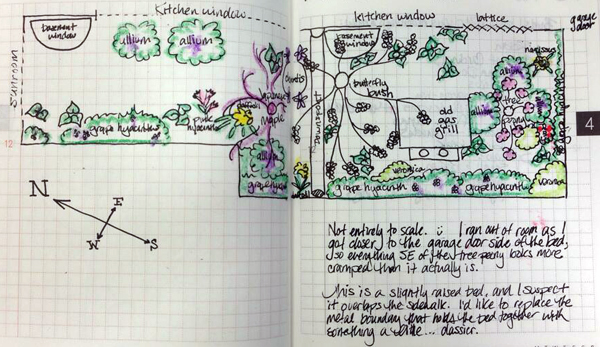 Kitchen window
basement window
allium
allium
Sunroom
pink hyacinth
grape hyacinth
daffodil
Maple
allium
grape hyacinth
N
E
W
S
12
Kitchen window
lattice
garage door
basement window
butterfly bush
Downspout
old gas grill
narcissus
allium
allium
tree peony
veronica
veronica
grape hyacinth
grape hyacinth
4
Not entirely to scale. :) I ran out of room as I
got closer to the garage door side of the bed,
so everything SE of the tree peony looks more
cramped than it actually is.
This is a slightly raised bed, and I suspect
it overlaps the sidewalk. I'd like to replace the
metal boundary that holds the bed together with
something a little... classier.